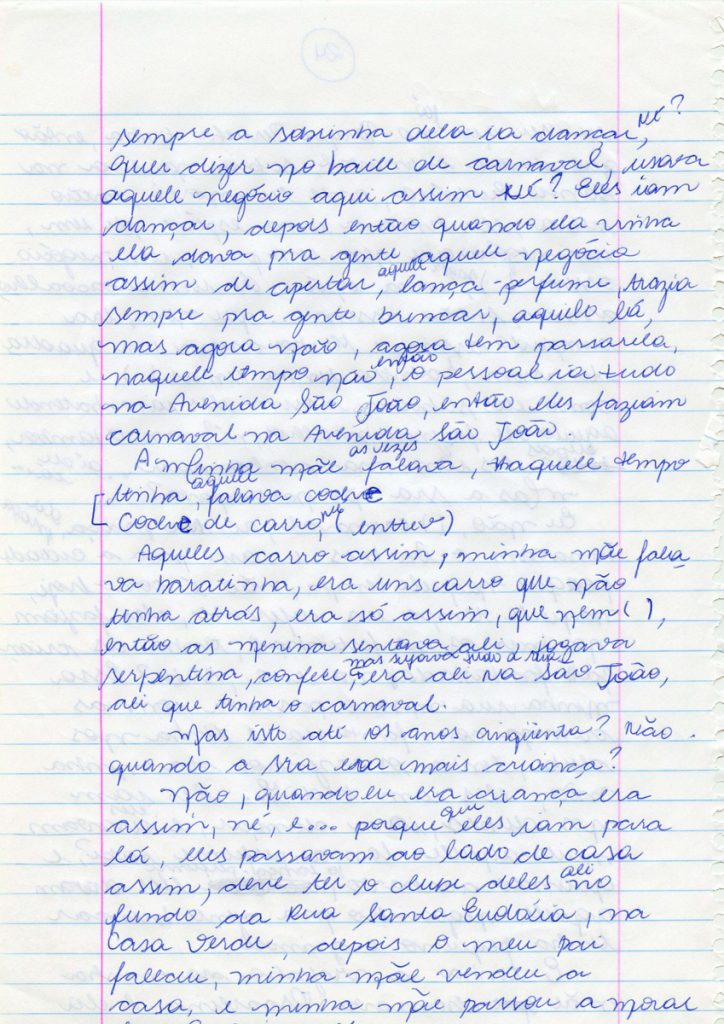 24
sempre a sobrinha dela ia dançar, né?
quer dizer no baile de carnaval, usava
aquele negócio aqui assim né? Eles iam
dançar, depois então quando ela vinha
ela dava pra gente aquele negócio
assim de apertar, aquele lança-perfume, trazia
sempre pra gente brincar, aquilo lá,
mas agora não, agora tem passarela,
naquele tempo não, então o pessoal ia tudo
na Avenida São João, então eles faziam
carnaval na Avenida São João.
A minha mãe as vezes falava, naquele tempo
tinha, aquele falava
de carro, né (entrev)
Aqueles carro assim, minha mãe fala
va baratinha, era uns carro que não
tinha atrás, era só assim, que nem ( ),
então as menina sentava ali, jogava
serpentina, confete, mas sujava tudo a rua era ali na São João,
ali que tinha o carnaval.
Mas isto até os anos cinqüenta? Não.
quando a sra era mais criança?
Não, quando eu era criança era
assim, né, e... porque que eles iam para
lá, eles passavam ao lado de casa
assim, deve ter o clube deles ali no
fundo da Rua Santa Eudóxia, na
Casa Verde, depois o meu pai
faleceu, minha mãe vendeu a
casa, e minha mãe passou a morar